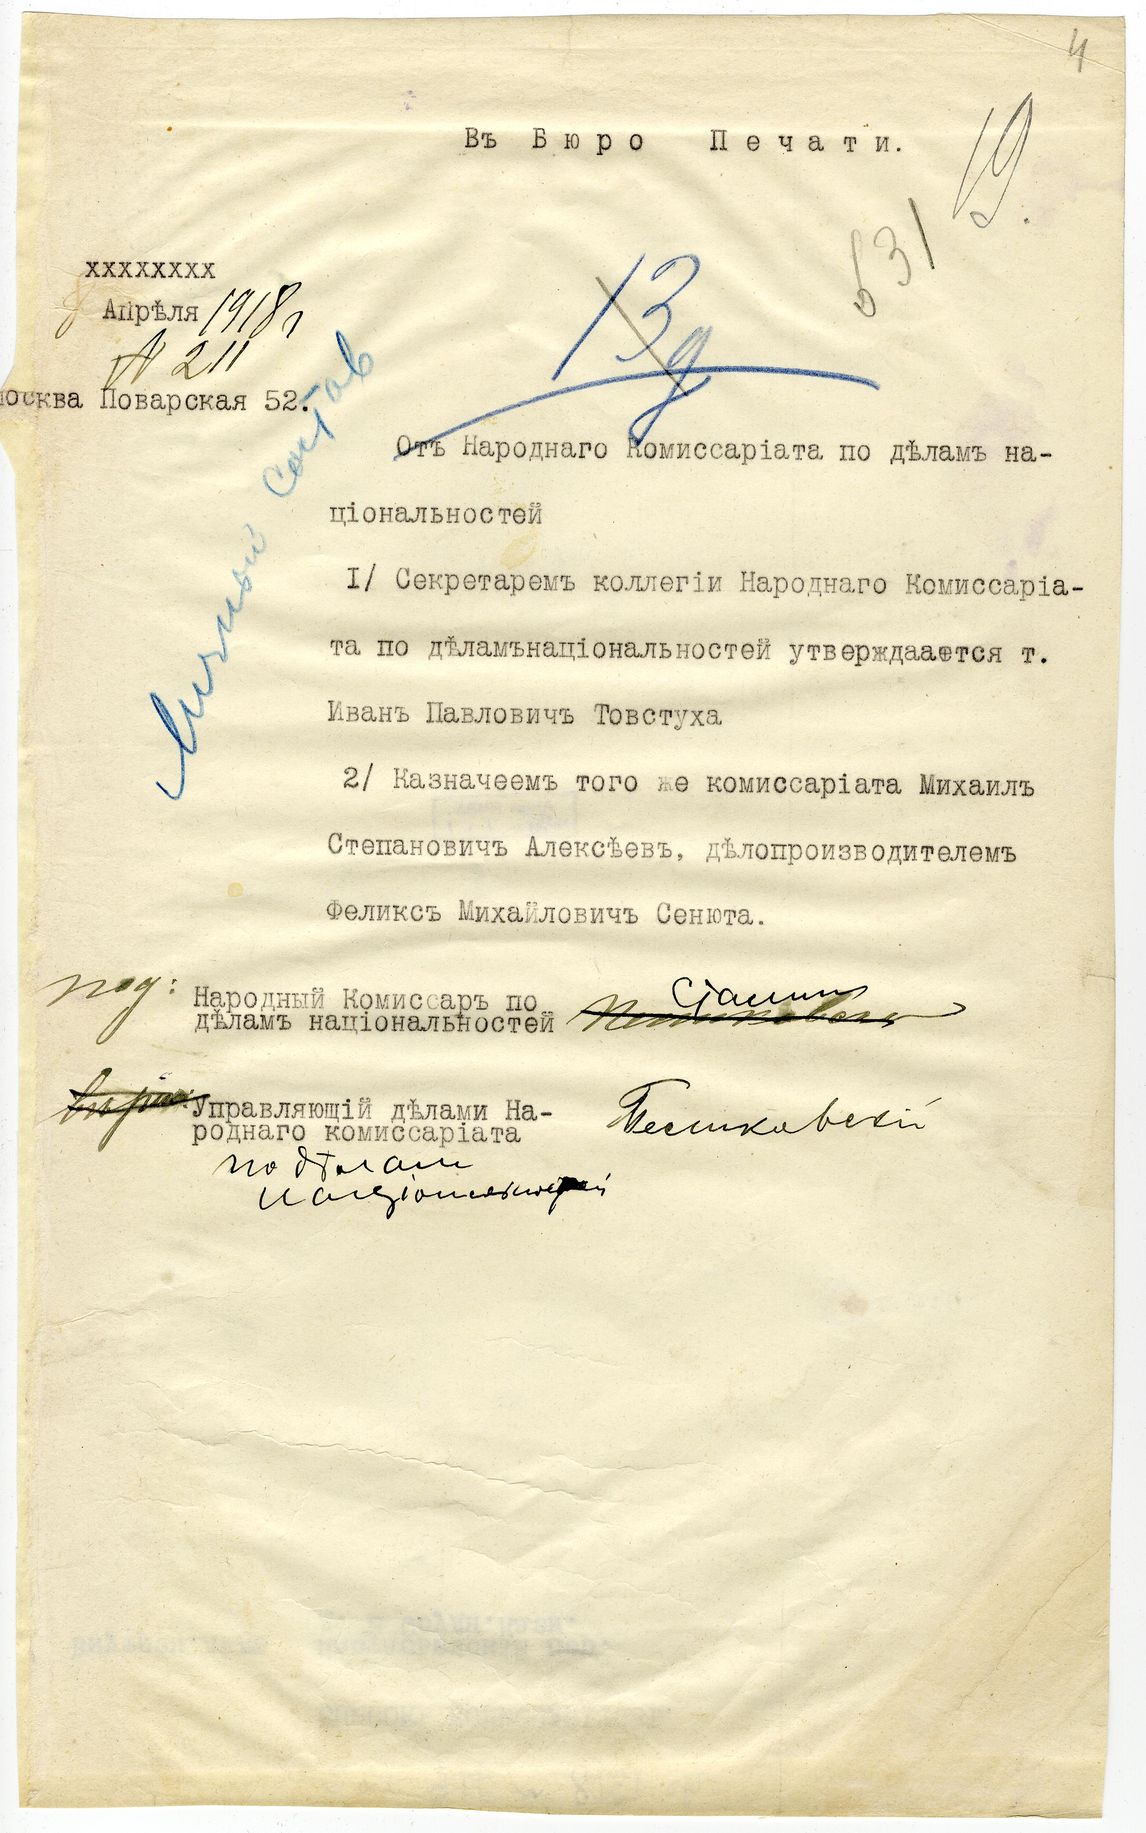 4
19.
531
Въ Бюро Печати.
хххххххх
8 Апрѣля 1918 г
N 211
Москва Поварская 52.
13
Личный состав
Отъ Народнаго Комиссаріата по дѣламъ на-
ціональностей
I/ Секретаремъ коллегіи Народнаго Комиссаріа-
та по дѣламънаціональностей утверждаается т.
Иванъ Павловичъ Товстуха
2/ Казначеемъ того же комиссаріата Михаилъ
Степановичъ Алексѣевъ, дѣлопроизводителемъ
Феликсъ Михайловичъ Сенюта.
под: Народный Комиссаръ по Сталин
дѣламъ національностей
Управляющій дѣлами На-
роднаго комиссаріата
по дѣлам
національностей